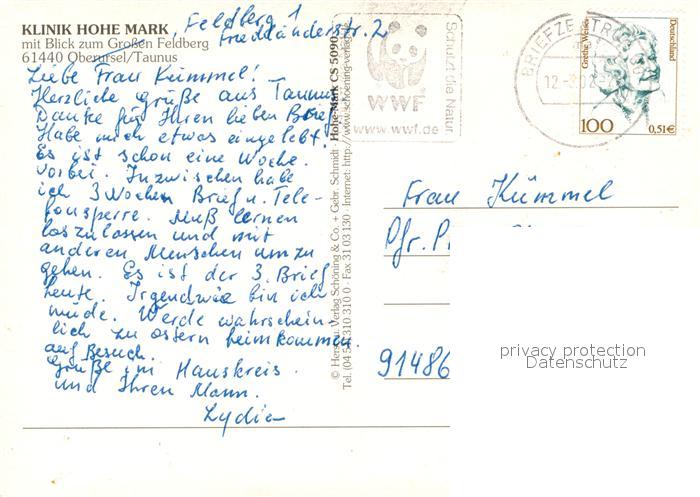 KLINIK HOHE MARK
mit Blick zum Großen Feldberg
61440 Oberursel/Taunus
, Feldberg 1
Friedländerstr. 2
Liebe Frau Kümmel!
Herzliche Grüße aus Taunus
Danke für Ihren lieben Brief
Habe mich etwas eingelebt.
Es ist schon eine Woche
vorbei. Inzwischen habe
ich 3 Wochen Brief u. Tele-
fonsperre. Muß lernen
loszulassen und mit
anderen Menschen umzu
gehen. Es ist der 3. Brief
heute. Irgendwie bin ich
müde. Werde wahrschein-
lich zu Ostern heimkommen.
auf Besuch.
Grüße im Hauskreis
und Ihren Mann.
Lydia
© Herst. u. Verlag Schöning & Co. + Gebr. Schmidt · Hohe-Mark CS 5090
Tel. (04 51) 310 310 0 · Fax 31 03 130 · Internet: http://www.schoening-verlag.de
WWF
www.wwf.de
Schützt die Natur
BRIEFZENTRUM
12.
Grethe Weiser
Deutschland
100
0,51€
Frau Kümmel
Pfr. P
91486
privacy protection
Datenschutz